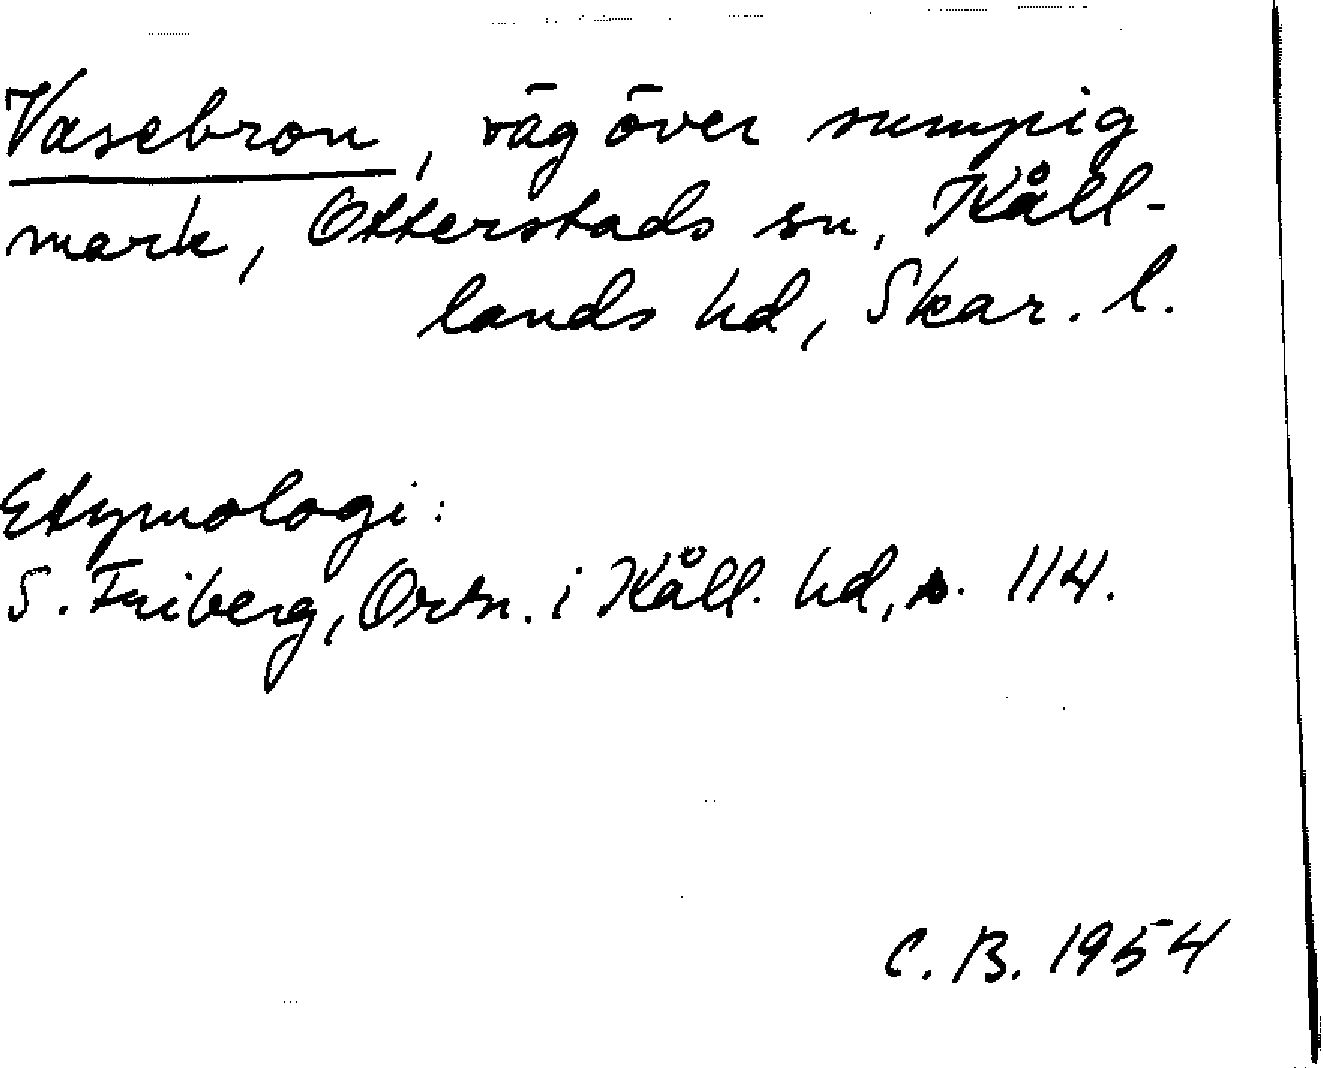 Vasebron, väg över sumpig
mark, Otterstads sn, Kåll-
lands hd, Skar. l.
Etymologi:
S. Friberg, Ortn. i Kåll. hd, s. 114.
C. B. 1954